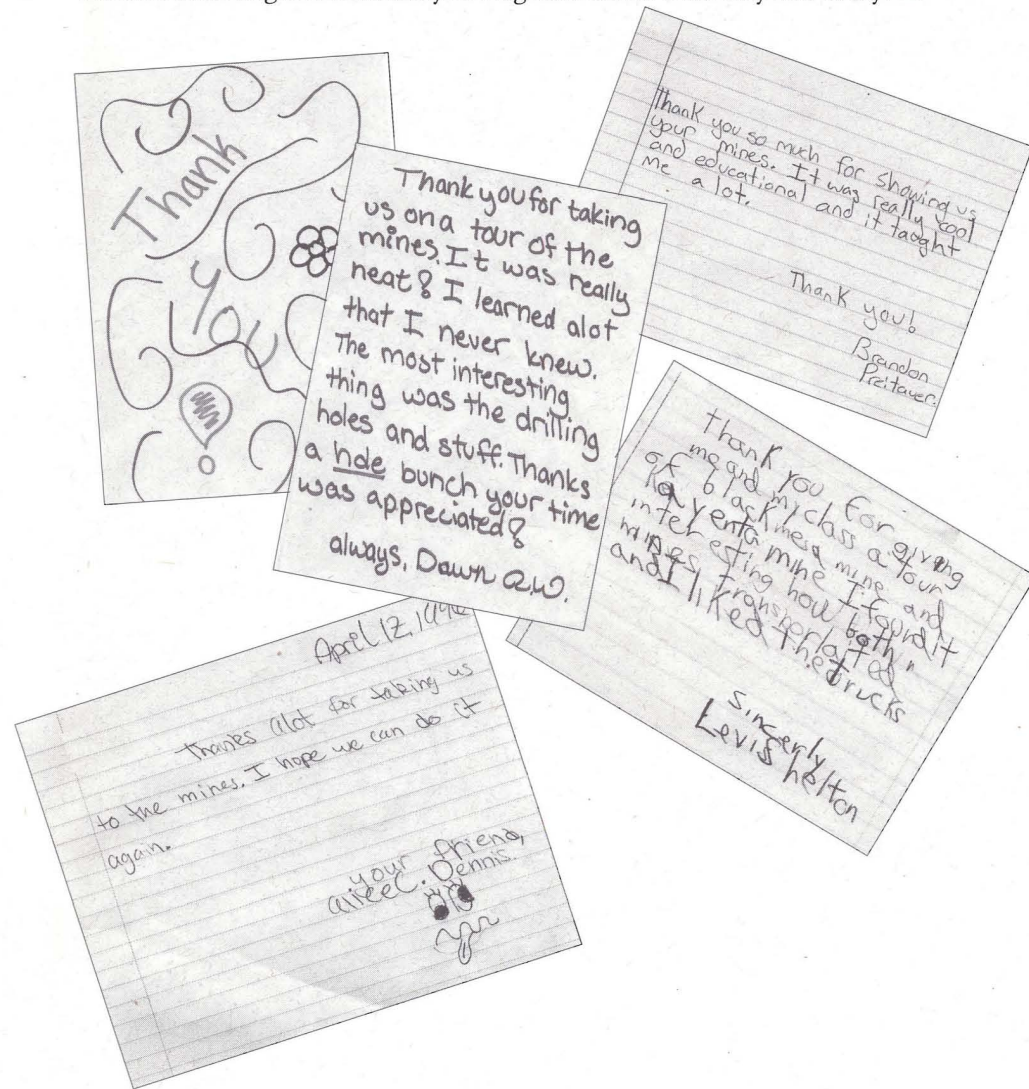 Thank
you
Thank you for taking
us on a tour of the
mines. It was really
neat! I learned alot
that I never knew.
The most interesting
thing was the drilling
holes and stuff. Thanks
a hole bunch your time
was appreciated!
always, Dawn A.W.
Thank you so much for showing us
your mines. It was really cool
and educational and it taught
me a lot.
Thank you!
Brandon
Preitauer.
thank you for giving
me and my class a tour
of black mesa mine and
kayenta mine I found it
interesting how both
mines transportated
and I liked the trucks
Sincerly
Levi Shelton
April 12, 1996
Thanks alot for taking us
to the mines. I hope we can do it
again.
your friend,
C. Dennis.